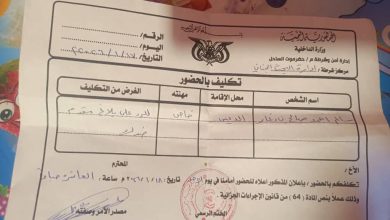 الجمهورية اليمنية
وزارة الداخلية
إدارة أمن وشرطة م / حضرموت الساحل
مركز شرطة / إدارة البحث الجنائي
الرقم :
اليوم :
التاريخ :
تكليف بالحضور
اسم الشخص
محل الإقامة
مهنته
الغرض من التكليف
صالح
الديس
محامي
للرد على بلاغ مقدم
ضدك
الأخ :
المحترم
تكلفكم بالحضور / بإعلان المذكور أعلاه للحضور أمامنا في يوم
ساعة : العاشرة صباحا
وذلك عملا بنص المادة ( 64 ) من قانون الإجراءات الجزائية .
الختم الرسمي
مصدر الأمر وصفته